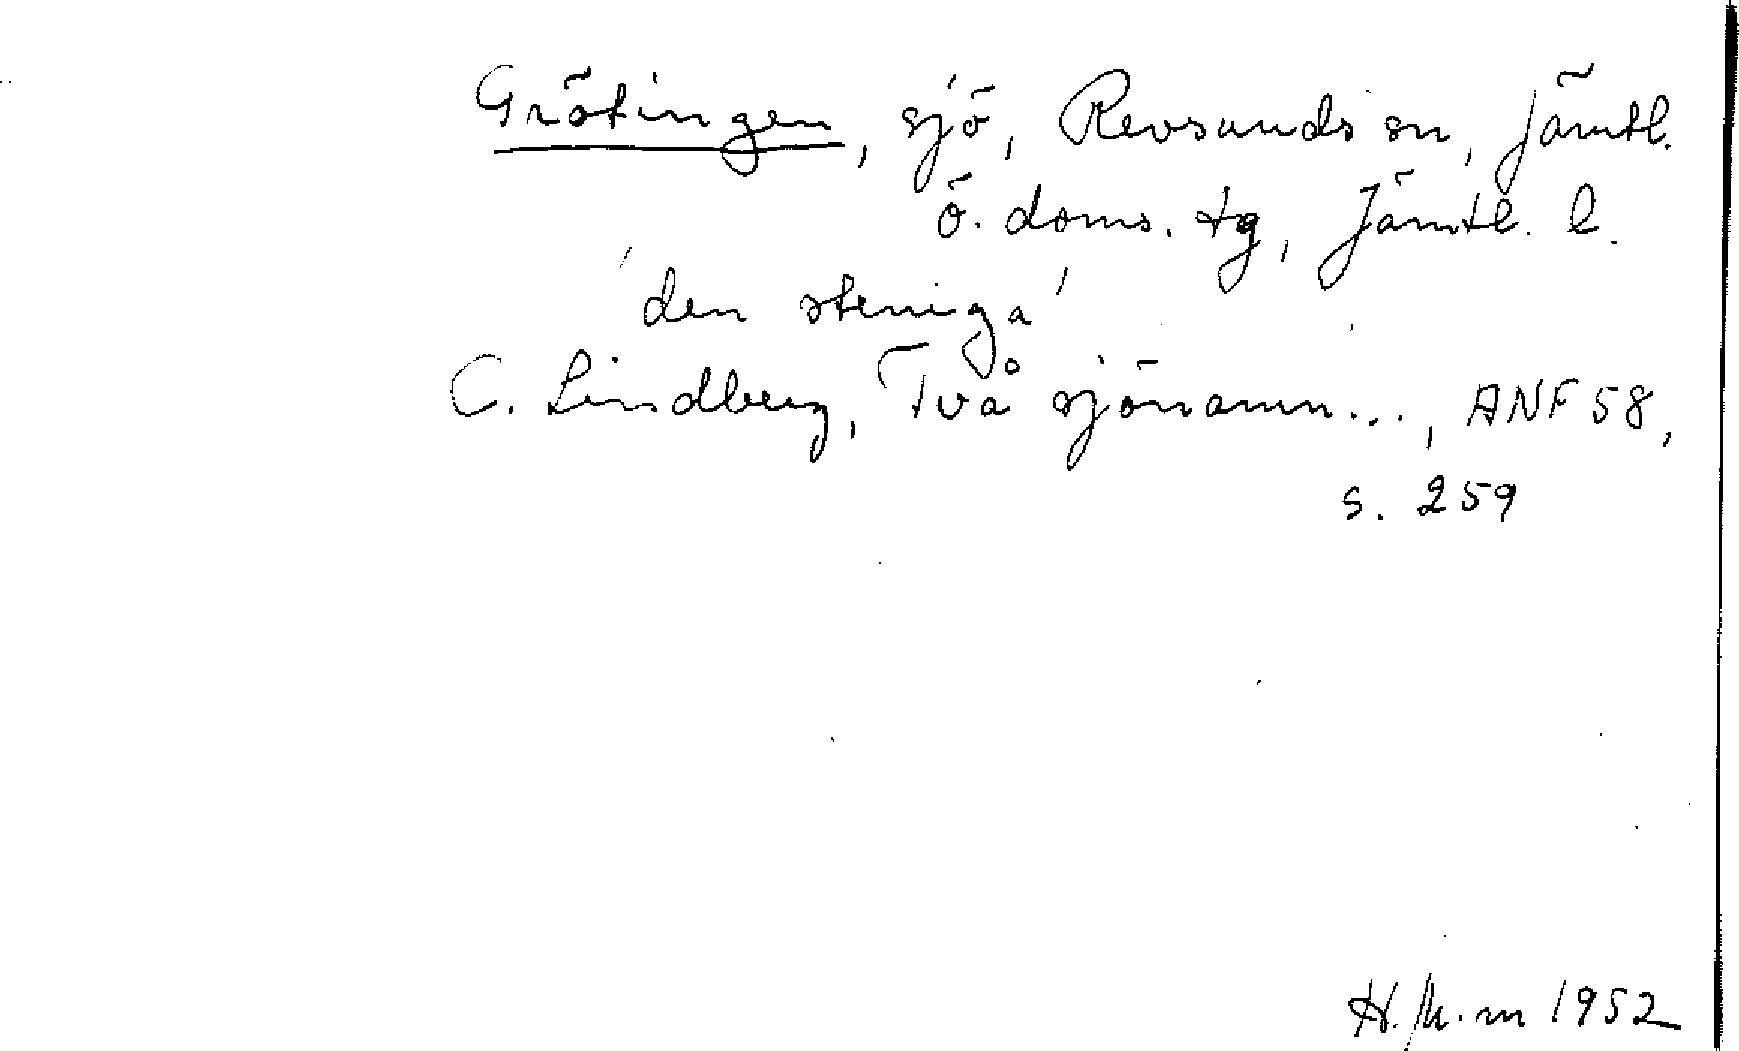 Grötingen, sjö, Revsunds sn, Jämtl.
ö. doms. tg, Jämtl. l.
'den steniga'
C. Lindberg, Två sjönamn..., ANF 58,
s. 259
1952